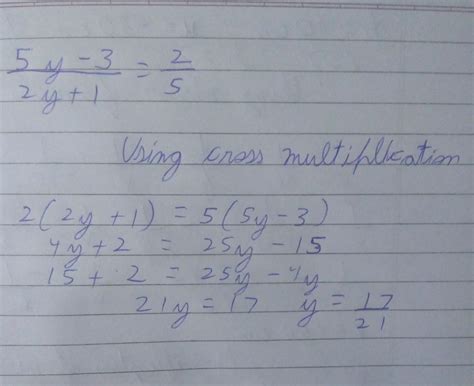 5y-3/2y+1 = 2/5
Using cross multiplication
2(2y+1) = 5(5y-3)
4y+2 = 25y-15
15+2 = 25y-4y
21y = 17 y = 17/21